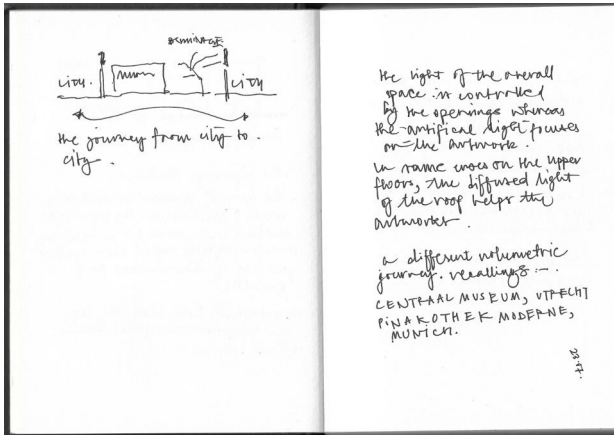 CITY.
CITY
the journey from city to.
city.
the light of the overall
space is controlled
by the openings whereas
the artifical light focuses
on the artwork.
in some cases on the upper
floors, the diffused light
of the roof helps the
artworks.
a different volumetric
journey. recallings :-.
CENTRAAL MUSEUM, UTRECHT
PINAKOTHEK MODERNE,
MUNICH.